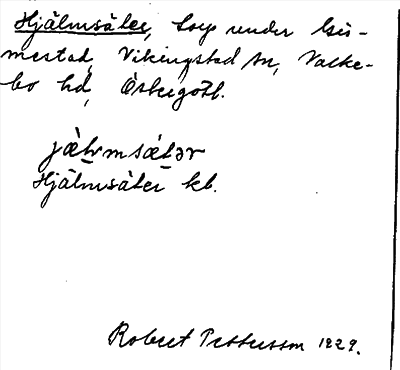 Hjälmsäter, torp under Gis-
mestad, Vikingstad sn, Valke-
bo hd, Östergötl.
jä̀lmsä́tər
Hjälmsäter kb.
Robert Pettersson 1929.